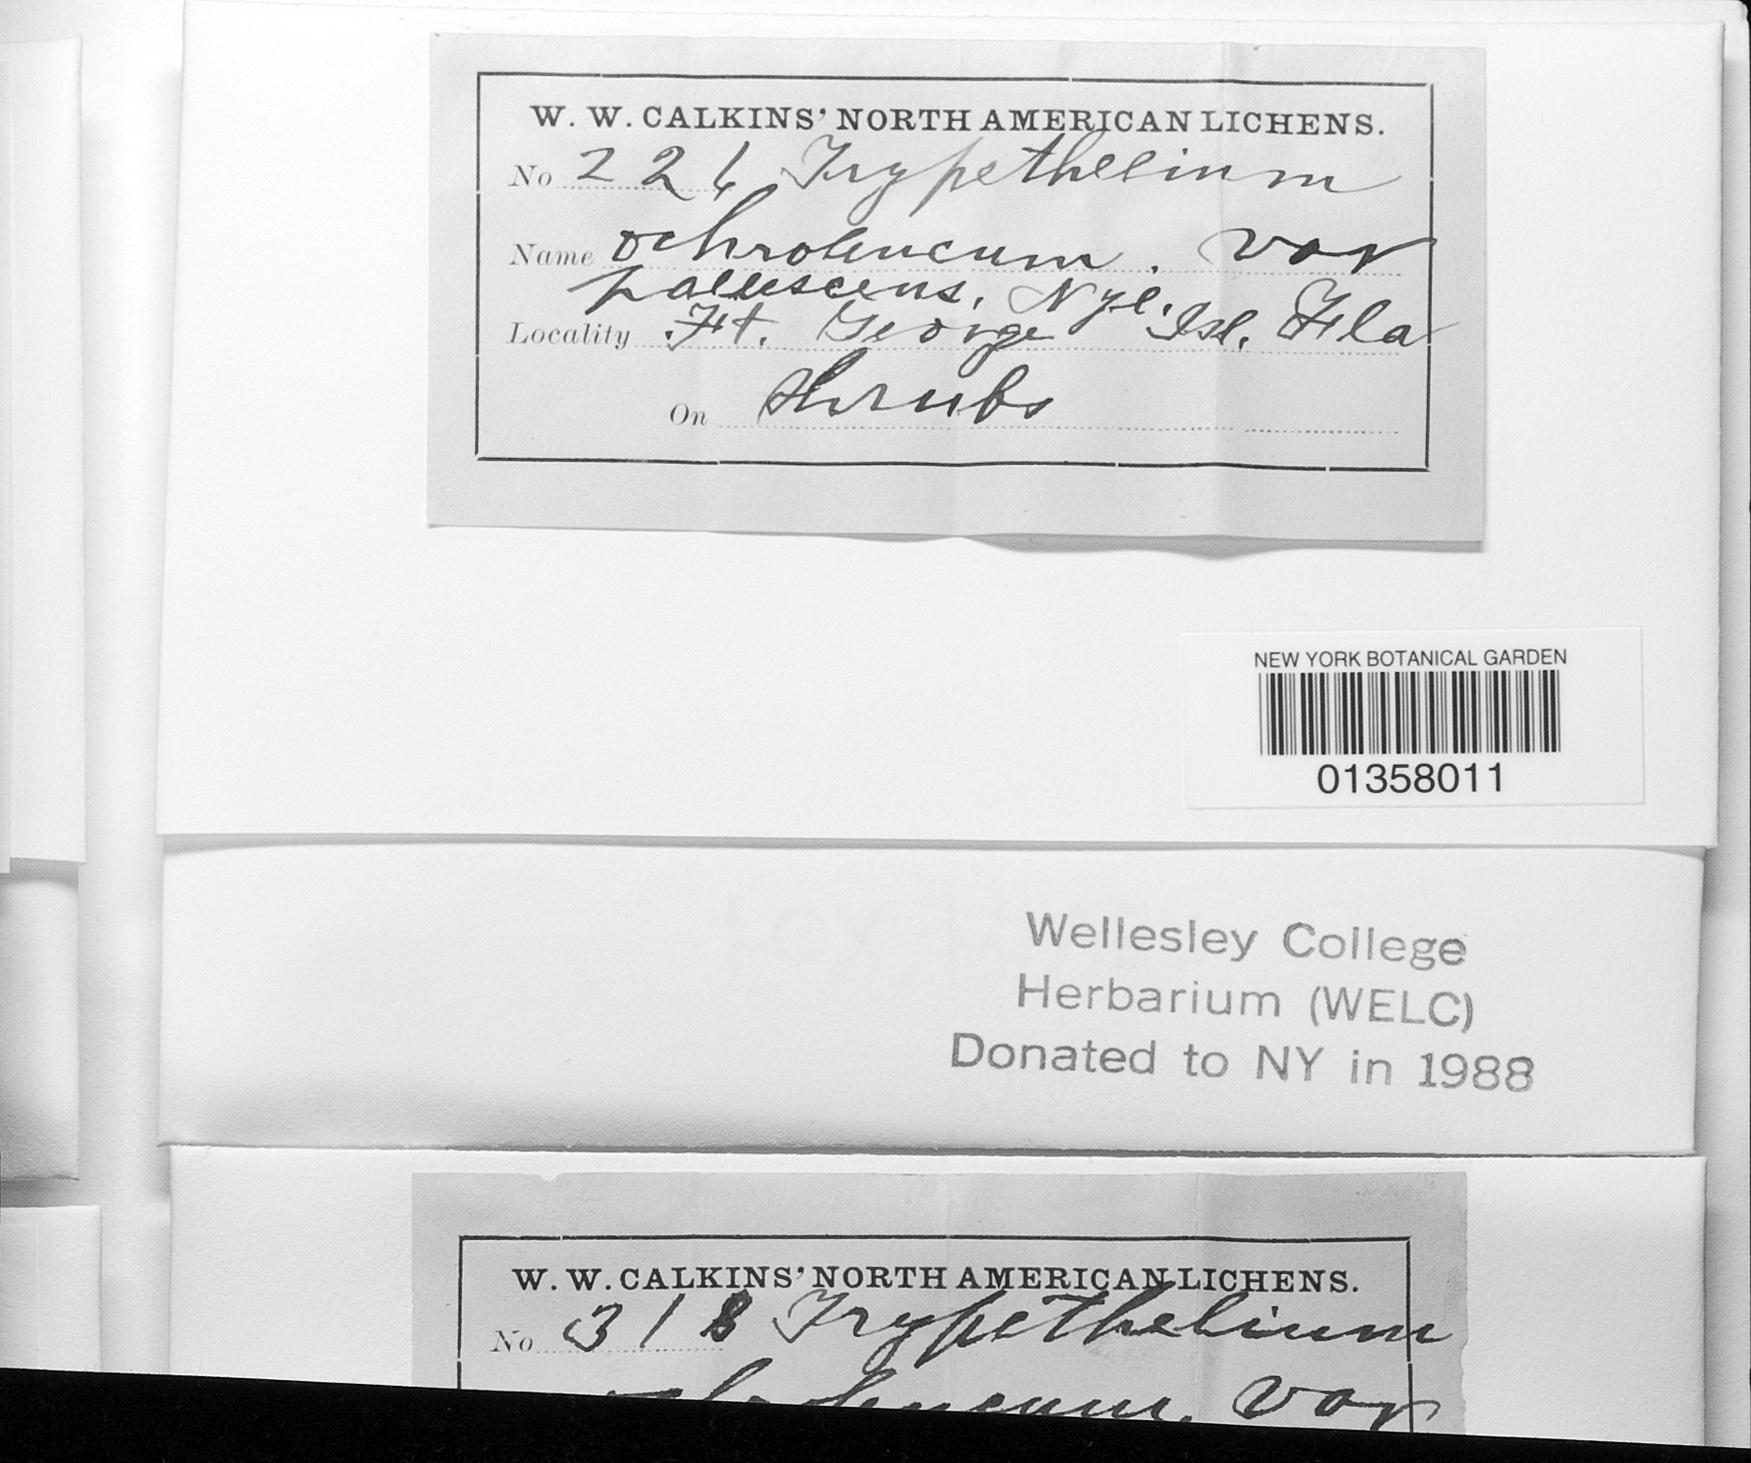 W. W. CALKINS' NORTH AMERICAN LICHENS.
No 226 Trypethelium
Name ochroleucum. var
pallescens, Nyl.
Locality Ft. George Isl. Fla
On shrubs
NEW YORK BOTANICAL GARDEN
01358011
Wellesley College
Herbarium (WELC)
Donated to NY in 1988
W. W. CALKINS' NORTH AMERICAN LICHENS.
No 318 Trypethelium
ochroleucum, var